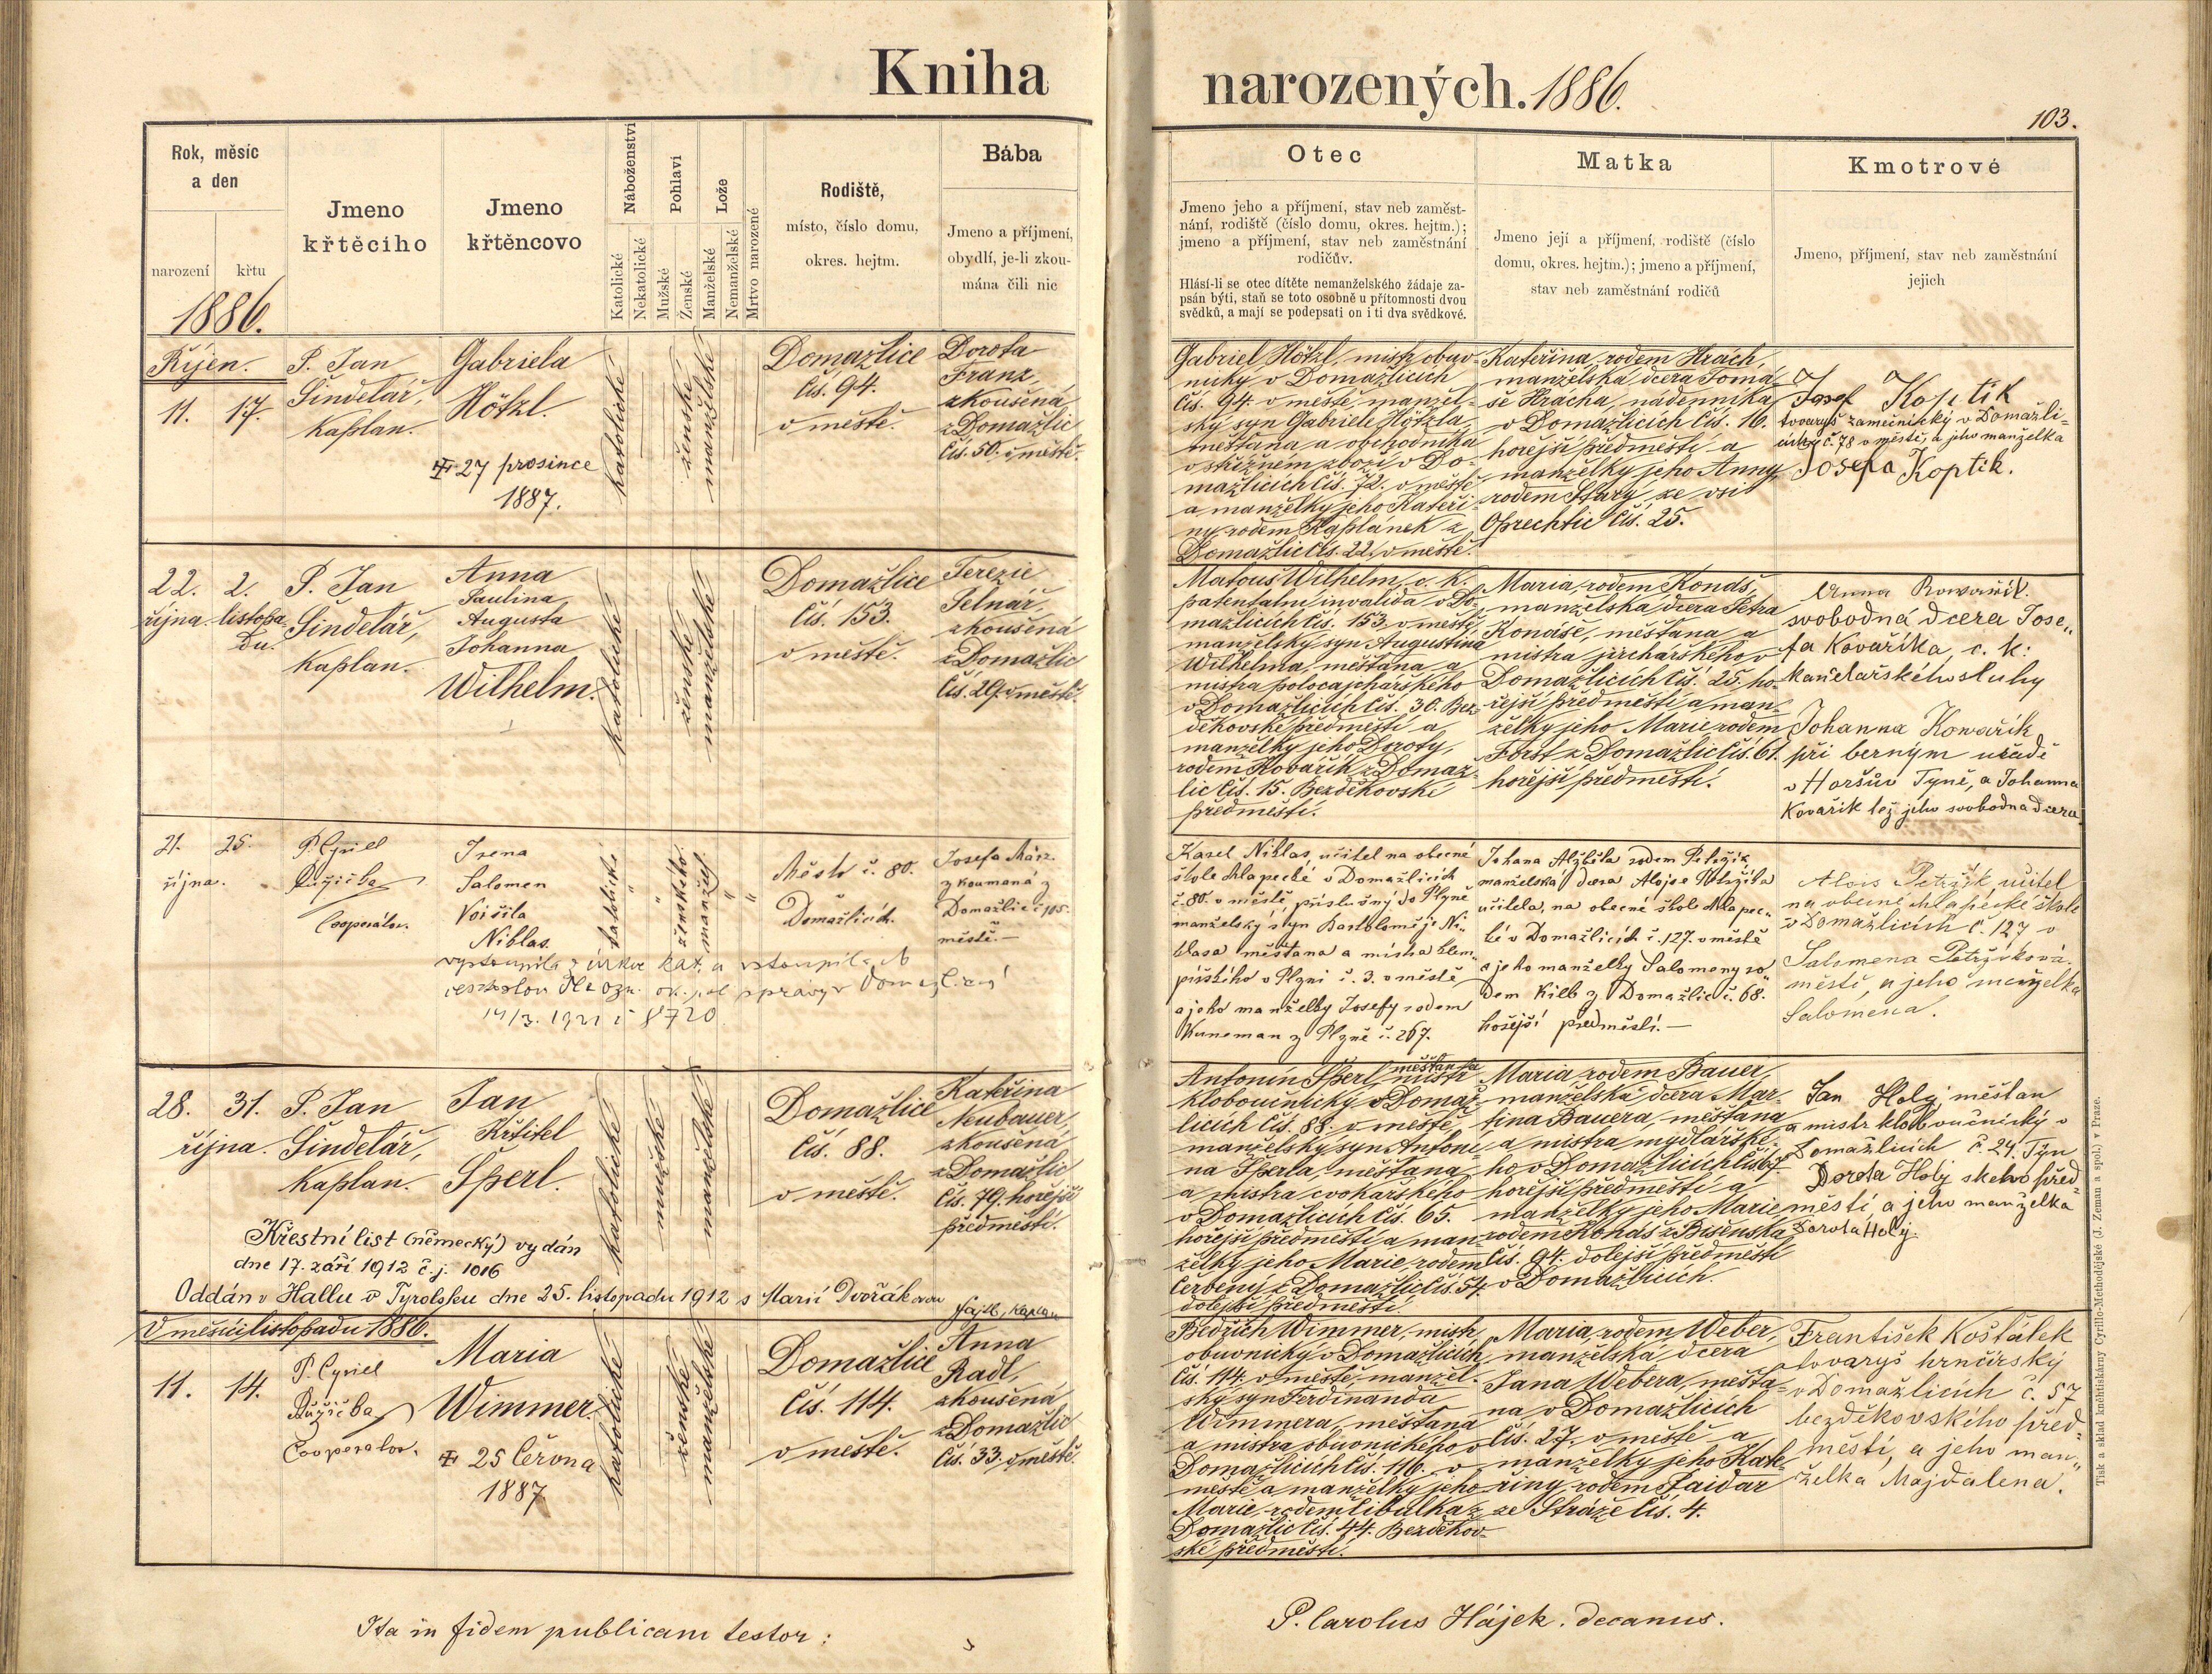 Kniha
narozených. 1886.
103.
Rok, měsíc
a den
narození
křtu
1886.
Jmeno
křtěcího
Jmeno
křtěncovo
Náboženství
Katolické
Nekatolické
Pohlaví
Mužské
Ženské
Lože
Manželské
Nemanželské
Mrtvo narozené
Rodiště,
místo, číslo domu,
okres. hejtm.
Bába
Jmeno a příjmení,
obydlí, je-li zkou-
mána čili nic
Otec
Jmeno jeho a příjmení, stav neb zaměst-
nání, rodiště (číslo domu, okres. hejtm.);
jmeno a příjmení, stav neb zaměstnání
rodičův.
Hlásí-li se otec dítěte nemanželského žádaje za-
psán býti, staň se toto osobně u přítomnosti dvou
svědků, a mají se podepsati on i ti dva svědkové.
Matka
Jmeno její a příjmení, rodiště (číslo
domu, okres. hejtm.); jmeno a příjmení,
stav neb zaměstnání rodičů
Kmotrové
Jmeno, příjmení, stav neb zaměstnání
jejich
Říjen.
11. 17.
P. Jan
Šindelář,
Kaplan.
Gabriela
Hötzl.
27 prosince
1887.
katolické
ženské
manželské
Domažlice
čís. 94.
v městě.
Dorota
Franz,
zkoušená
z Domažlic
čís. 50. v městě.
Gabriel Hötzl, mistr obuv-
nický v Domažlicích
čís. 94. v městě, manžel-
ský syn Gabriele Hötzla,
měšťana a obchodníka
v střižném zboží v Do-
mažlicích čís. 72. v městě
a manželky jeho Kateři-
ny, rodem Kaplánek z
Domažlic čís. 22. v městě.
Kateřina, rodem Hrách,
manželská dcera Tomá-
še Hrácha, nádenníka
v Domažlicích čís. 16.
hořejší předměstí a
manželky jeho Anny,
rodem Starý, ze vsi
Oprechtic čís. 25.
Josef Koptik
tovaryš zámečnický v Domažli-
cích č. 78 v městě, a jeho manželka
Josefa Koptik.
22. 2.
října listopa-
du.
P. Jan
Šindelář,
Kaplan.
Anna
Paulina
Augusta
Johanna
Wilhelm.
katolické
ženské
manželské
Domažlice
čís. 153.
v městě.
Terezie
Selnář,
zkoušená
z Domažlic
čís. 29. v městě.
Matouš Wilhelm, c. k.
patentalní invalida v Do-
mažlicích čís. 153. v městě,
manželský syn Augustina
Wilhelma, měšťana a
mistra
v Domažlicích čís. 30. Bez-
děkovské předměstí a
manželky jeho Doroty,
rodem Kovářík z Domaž-
lic čís. 15. Bezděkovské
předměstí.
Maria, rodem Konáš,
manželská dcera Petra
Konáše, měšťana a
mistra jirchářského v
Domažlicích čís. 25. ho-
řejší předměstí a man-
želky jeho Marie rodem
Forst z Domažlic čís. 61.
hořejší předměstí.
Anna Kowařik.
svobodná dcera Jose„
fa Kovaříka, c. k:
kancelářského sluhy
Johanna Kowařik
při berným uřadě
v Horšův Týně, a Johanna
Kovařik též jeho svobodna dcera.
21. 25.
října.
P. Cyriel
Růžička
Cooperátor.
Irena
Salomen
Voršila
Niklas.
katolické
ženského
manžel.
Město č. 80.
Domažlicích.
Josefa März.
zkoumaná z
Domažlic č. 105.
městě.—
vystoupila z církve kat. a vstoupila k
českoslov.
14/3. 1921 č 8720
Karel Niklas, učitel na obecné
škole chlapecké v Domažlicích
č. 80. v městě, příslušný do Plzně
manželský syn Bartoloměje Ni-
klasa měšťana a mistra klem-
pířského v Plzni č. 3. v městě
a jeho manželky Josefy rodem
Kuneman z Plzně č. 267.
Johana Alžběta rodem Petržik
manželská dcera Alojse Petržika
učitele, na obecné škole chlapec„
ké v Domažlicích č. 127. v městě
a jeho manželky Salomeny ro„
dem Kilb z Domažlic č. 68.
hořejší předměstí.—
Alois Petržik, učitel
na obecné chlapecké škole
v Domažlicích č. 127 v
Salomena Petržíková.
městě, a jeho manželka
Salomena.
28. 31.
října.
P. Jan
Šindelář,
Kaplan.
Jan
Křtitel
Šperl.
katolické
mužské
manželské
Domažlice
čís. 88.
v městě.
Kateřina
Neubauer,
zkoušená
z Domažlic
čís. 79. hořejší
předměstí.
Křestní list (německý) vydán
dne 17. září 1912 č.j. 1016
Oddán v Hallu v Tyrolsku dne 25. listopadu 1912 s Marií Dvořákovou
kaplan
Antonín Šperl, měšťan a mistr
kloboučnický v Domaž-
licích čís. 88. v městě,
manželský syn Antoni-
na Šperla, měšťana
a mistra cvokařského
v Domažlicích čís. 65.
hořejší předměstí a man-
želky jeho Marie, rodem
Červený z Domažlic čís. 54.
dolejší předměstí.
Maria, rodem Bauer,
manželská dcera Mar-
tina Bauera, měšťana
a mistra mydlářské-
ho v Domažlicích čís. 67.
hořejší předměstí a
manželky jeho Marie
rodem Konáš
čís. 94. dolejší předměstí
v Domažlicích.
Jan Holý, měštan
a mistr kloboučnický v
Domažlicích č. 24. Týn
Dorota Holý ského před„
městí, a jeho manželka
Dorota Holý.
V měsíci listopadu 1886.
11. 14.
P. Cyriel
Růžička
Cooperator.
Maria
Wimmer.
25 Června
1887
katolické
ženské
manželské
Domažlice
čís. 114.
v městě.
Anna
Radl,
zkoušená
z Domažlic
čís. 33. v městě.
Bedřich Wimmer, mistr
obuvnický v Domažlicích
čís. 114. v městě, manžel-
ský syn Ferdinanda
Wimmera, měšťana
a mistra obuvnického v
Domažlicích čís. 116. v
městě a manželky jeho
Marie, rodem Cibulka z
Domažlic čís. 44. Bezděkov-
ské předměstí.
Maria, rodem Weber,
manželská dcera
Jana Webera, měšťa-
na v Domažlicích
čís. 27. v městě a
manželky jeho Kate-
řiny, rodem Paidar
ze Stráže čís. 4.
František Košťálek
tovaryš hrnčírský
v Domažlicích č. 57
bezděkovského před-
městí, a jeho man„
želka Majdalena.
Tisk a sklad knihtiskárny Cyrillo-Methodějské (J. Zeman a spol.) v Praze.
Ita in fidem publicam testor:
P. Carolus Hájek. decanus.